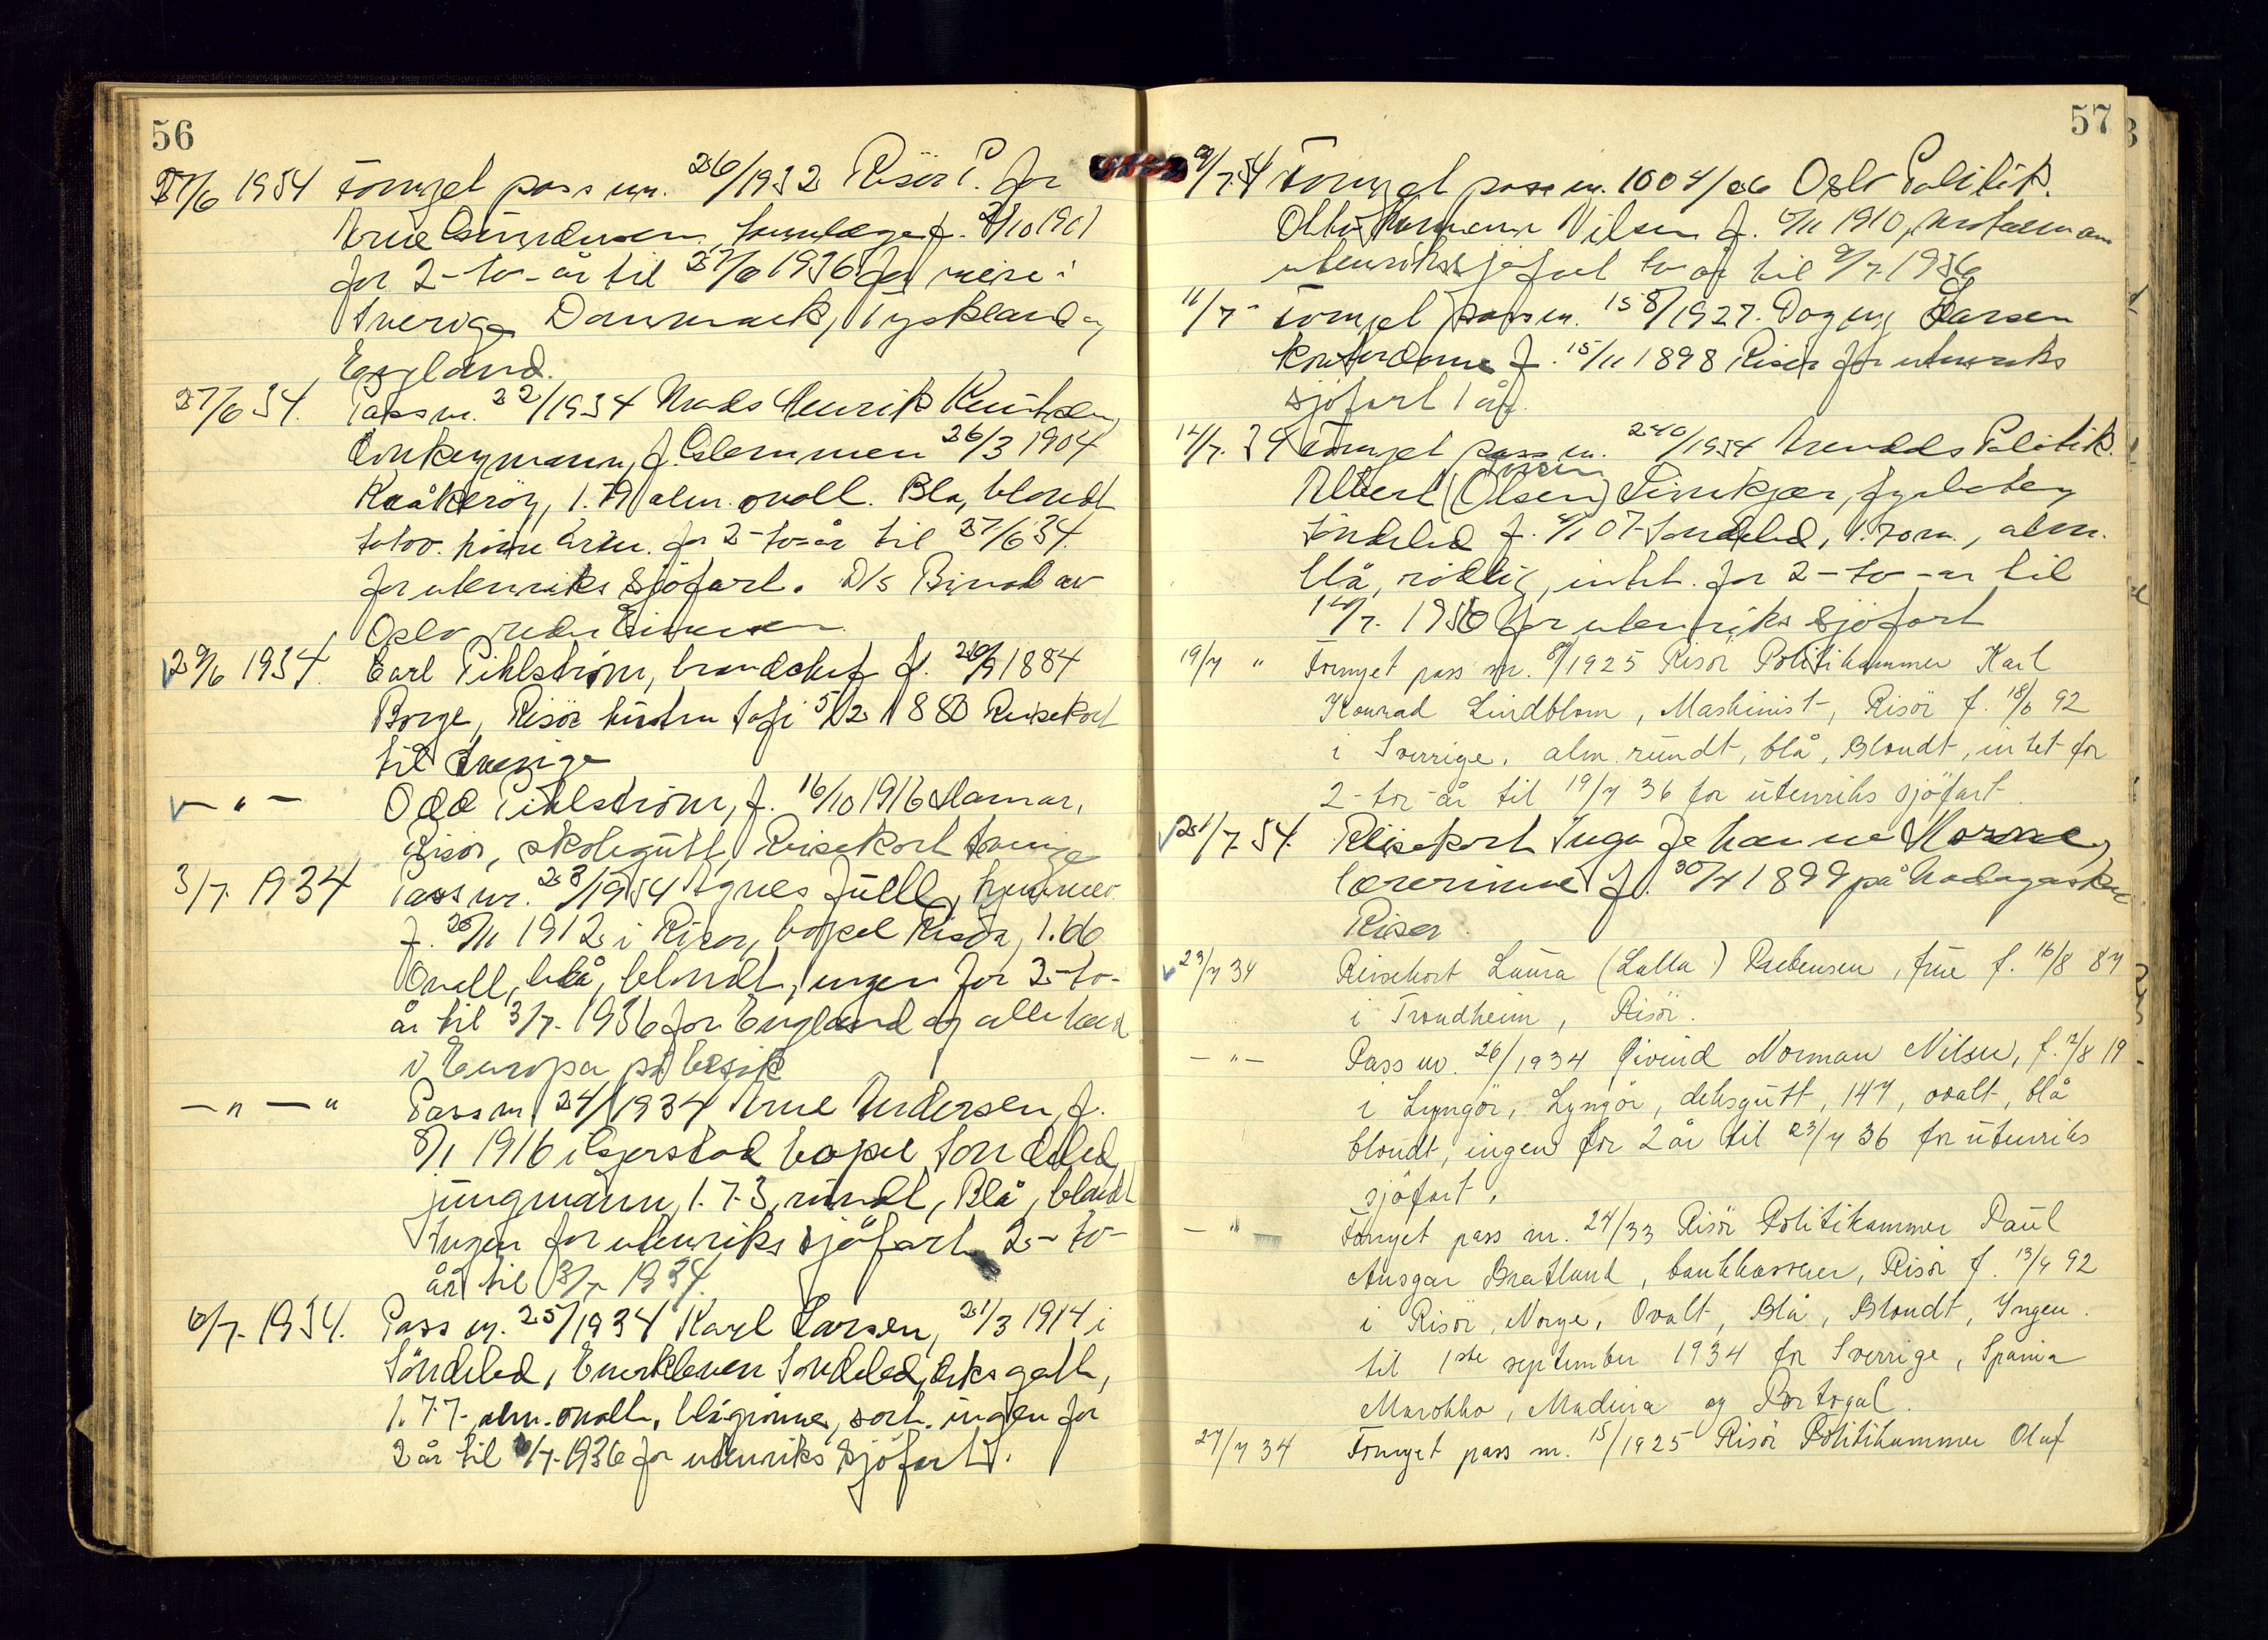 56
27/6 1934 Fornyet pass nr. 26/1932 Risør P. for
Arne Gundersen, f. 2/10 1901
for 2-to-år til 27/6 1936 for reise i
Sverige Danmark, Tyskland og
England.
27/6 34. Pass nr. 22/1934 Mads Henrik Knutsen,
donkeymann, f. Glemmen 26/3 1904
Kråkerøy, 1.79 alm. ovall. Blå, blondt
tatov. høire arm. for 2-to-år til 27/6 34.
for utenriks sjöfart. D/s av
Oslo
29/6 1934. Carl Pihlström, brandchef f. 1884
Borge, Risör hustru Sofi 5/12 1880 Reisekort
til Sverige
– " – Odd Pihlström, f. 16/10 1916 Hamar,
Risör, skolegutt Reisekort Sverige
3/7. 1934 Pass nr. 23/1934 Agnes Juell,
f. 26/11 1912 i Risör, bopel Risör, 1.66
Ovall, blå, blondt, ingen for 2-to-
år til 3/7. 1936 for England og alle land
i Europa på besök
– " – " Pass nr 24/1934 Arne Andersen, f.
8/1 1916 i Gjerstad bopel Söndeled,
jungmann, 1.73, rundt, Blå, blondt
Ingen for utenriks sjöfart 2-to-
år til 3/7 1934.
6/7. 1934. Pass nr. 25/1934 Karl Larsen, 21/3 1914 i
Söndeled, Söndeled, deksgutt,
1.77. alm. ovalt, blågrönne, sort. ingen for
2 år til 6/7. 1936 for utenriks sjöfart.
57
9/7.34 Fornyet pass nr. 1004/26 Oslo Politik.
Otto Hermann Nilsen f. 1910,
utenrikssjøfart to år til 9/7. 1936
11/7 - Fornyet pass nr. 158/1927. Dagny Larsen
f. 15/11 1898 Risör for utenriks
sjöfart 1 år.
12/7. 34 Fornyet pass nr. 240/1934 Arendals Politik.
Albert (Olsen) fyrböter,
Söndeled f. 07 Söndeled, 1.70 m., alm.
blå, rödlig, intet. for 2-to-år til
12/7. 1936 for utenriks sjöfart
19/7 " Fornyet pass nr. 8/1925 Risör Politikammer Karl
Konrad Lindblom, Maskinist, Risör f. 18/6 92
i Sverrige, alm. rundt, blå, Blondt, intet for
2-to-år til 19/7 36 for utenriks sjöfart.
21/7 34. Reisekort Inga Johanne
lærerinne f. 30/7 1899 på Madagaskar
Risør
23/7 34 Reisekort Laura (Lalla) Prebensen, frue f. 16/8 87
i Trondheim, Risör.
– " – Pass nr. 26/1934 Øivind Norman Nilsen, f. 12/8 19
i Lyngör, Lyngör, deksgutt, 147, ovalt, blå
blondt, ingen for 2 år til 23/7 36 for utenriks
sjöfart.
– " Fornyet pass nr. 24/33 Risör Politikammer Paul
Ansgar Bratlund, bankkasserer, Risör f. 13/4 92
i Risör, Norge, Ovalt, Blå, Blondt, Ingen.
til 1ste september 1934 for Sverrige, Spania
Marokko, Madeira og Portogal.
27/7 34 Fornyet pass nr. 15/1925 Risör Politikammer Olaf